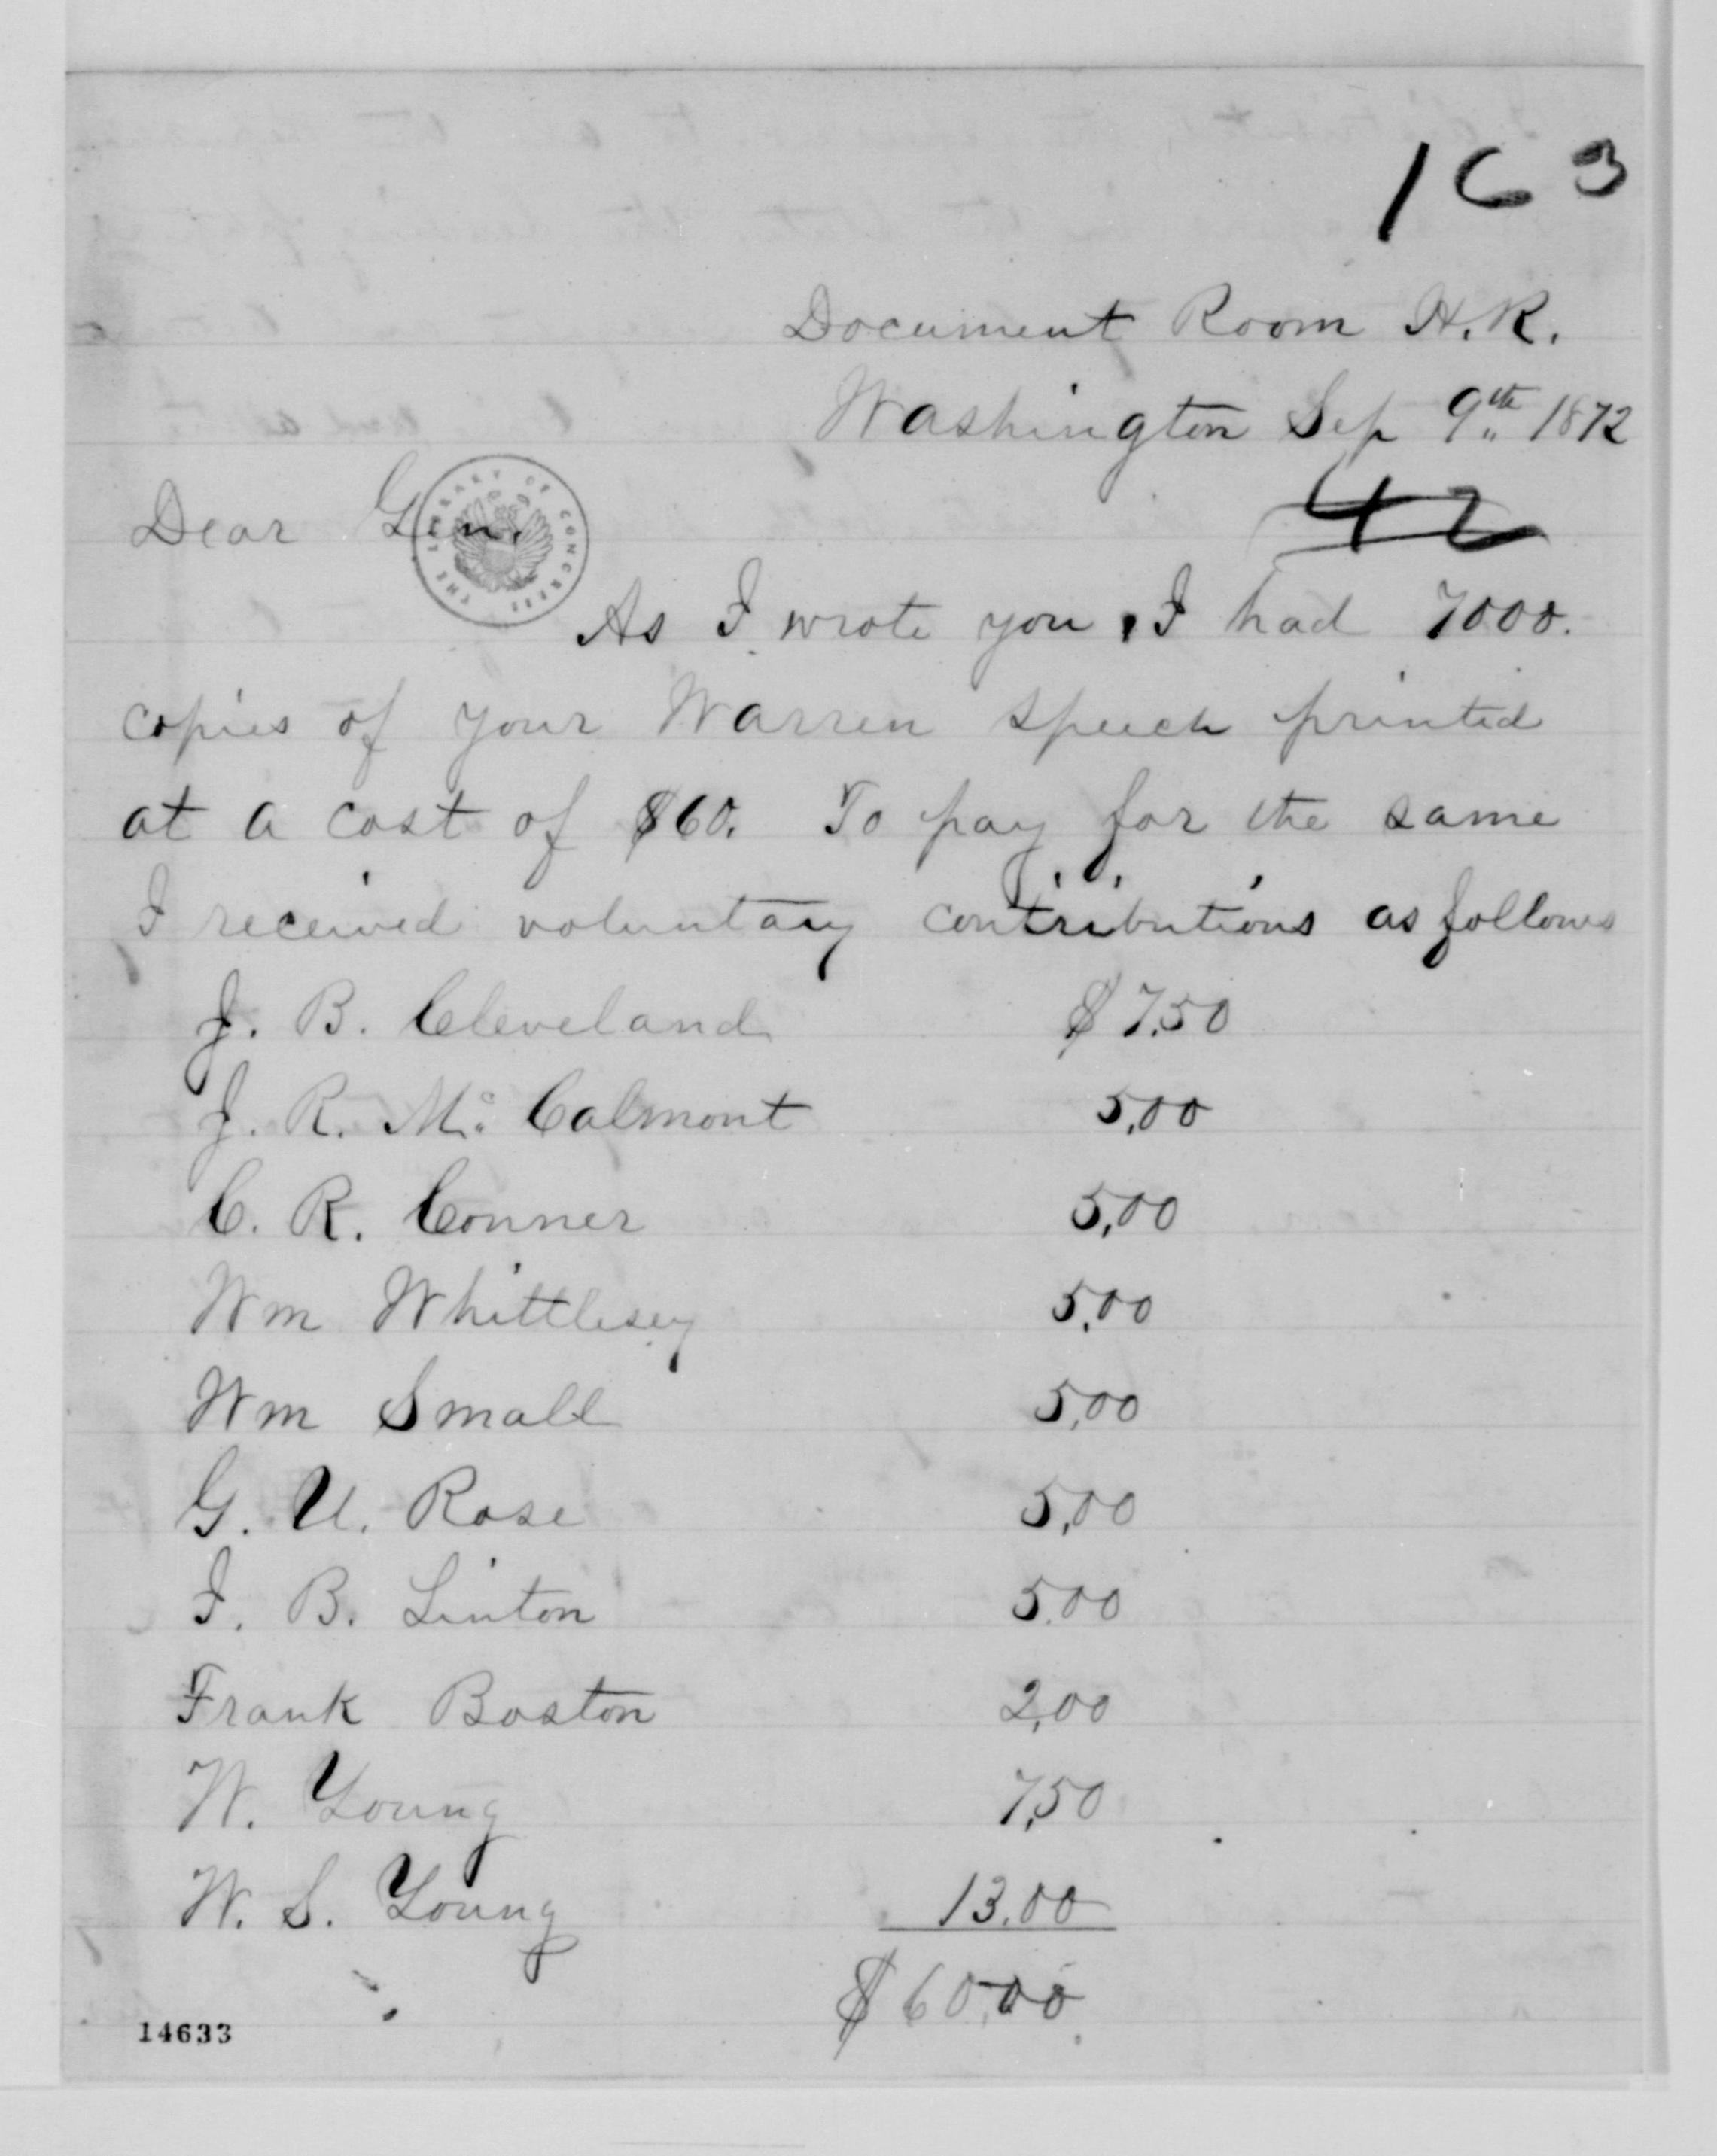 163
Document Room H. R.
Washington Sep 9th 1872
42
Dear Gen.
THE LIBRARY OF CONGRESS
As I wrote you, I had 7000.
copies of your Warren speech printed
at a cost of $60. To pay for the same
I received voluntary contributions as follows
J. B. Cleveland $7.50
J. R. Mc Calmont 5,00
C. R. Conner 5,00
Wm Whittlesey 5,00
Wm Small 5,00
G. U. Rose 5,00
I. B. Linton 5.00
Frank Boston 2,00
W. Young 7,50
W. S. Young 13.00
$60.00
14633